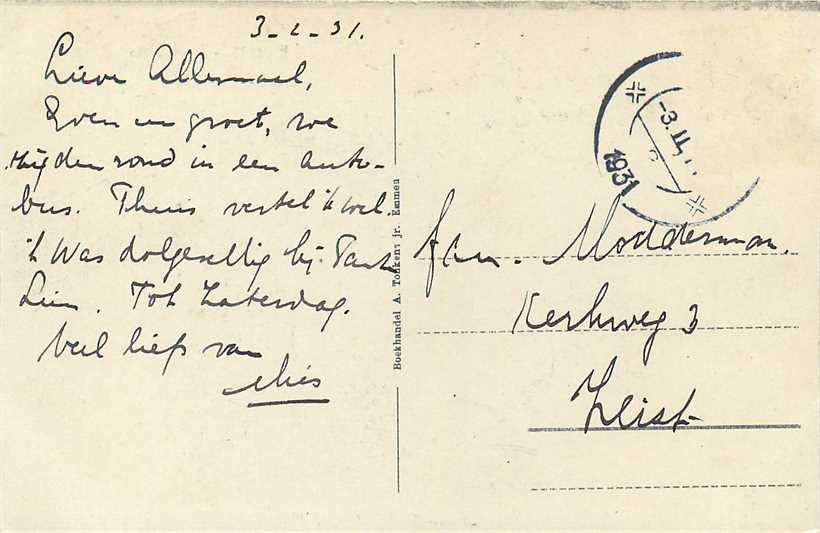 3-2-31.
Lieve Allemaal,
Even een groet, we
rijden rond in een auto-
bus. Thuis vertel ik wel.
't Was dolgezellig bij Tante
Lien. Tot Zaterdag.
Veel liefs van
Mies
Boekhandel A. Tonkens jr. Emmen
-3.II.
1931
fam. Modderman.
Kerkweg 3
Zeist